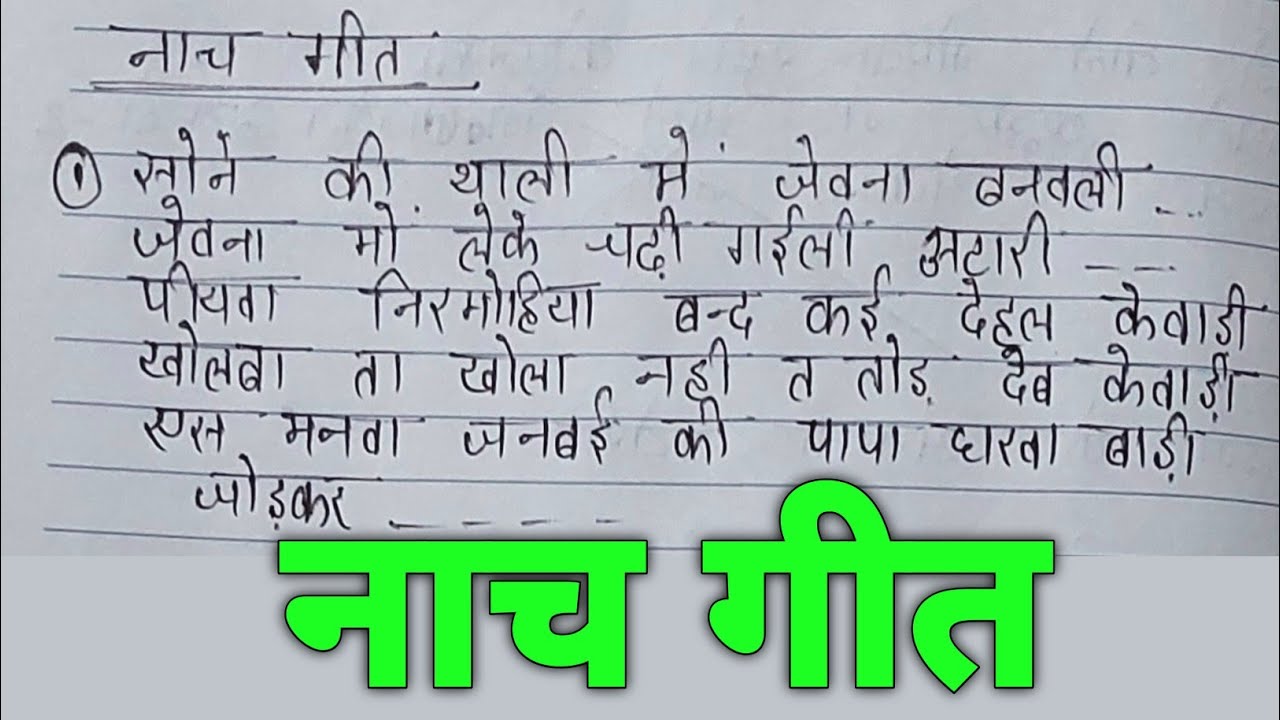 नाच गीत
① सोने की थाली में जेवना बनवली ...
जेवना मो लेके चढ़ी गईली अटारी ---
पीयवा निरमोहिया बन्द कई देहल केवाड़ी
खोलबा ता खोला नही त तोड़ देब केवाड़ी
एस मनवा जनबई की पापा घरवा बाड़ी
जोड़कर -----
नाच गीत